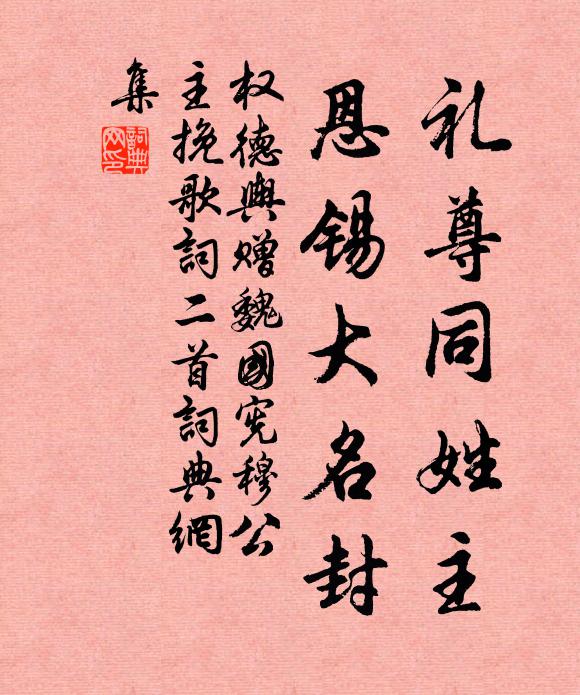 礼尊同姓主
恩锡大名封
权德舆赠魏國宪穆公
主挽歌詞二首詞典網
集
詞典
网印